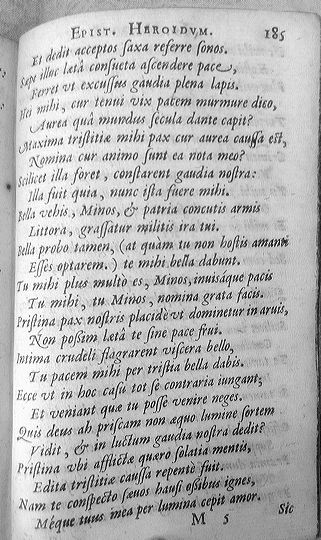 EPIST. HEROIDVM. 185
Et dedit acceptos saxa referre sonos.
Sæpe illuc lætâ consueta ascendere pace,
Ferret vt excussus gaudia plena lapis.
Hei mihi, cur tenui vix pacem murmure dico,
Aurea quâ mundus secula dante capit?
Maxima tristitiæ mihi pax cur aurea caussa est,
Nomina cur animo sunt ea nota meo?
Scilicet illa foret, constarent gaudia nostra:
Illa fuit quia, nunc ista fuere mihi.
Bella vehis, Minos, & patria concutis armis
Littora, grassatur militis ira tui.
Bella probo tamen, (at quàm tu non hostis amanti
Esses optarem.) te mihi bella dabunt.
Tu mihi plus multò es, Minos, inuisáque pacis
Tu mihi, tu Minos, nomina grata facis.
Pristina pax nostris placidè vt dominetur in aruis,
Non possim lætâ te sine pace frui.
Intima crudeli flagrarent viscera bello,
Tu pacem mihi per tristia bella dabis.
Ecce vt in hoc casu tot se contraria iungant,
Et veniant quæ tu posse venire neges.
Quis deus ah priscam non æquo lumine sortem
Vidit, & in luctum gaudia nostra dedit?
Pristina vbi afflictæ quæro solatia mentis,
Edita tristitiæ caussa repente fuit.
Nam te conspecto sæuos hausi ossibus ignes,
Méque tuus mea per lumina cepit amor.
M 5 Sic